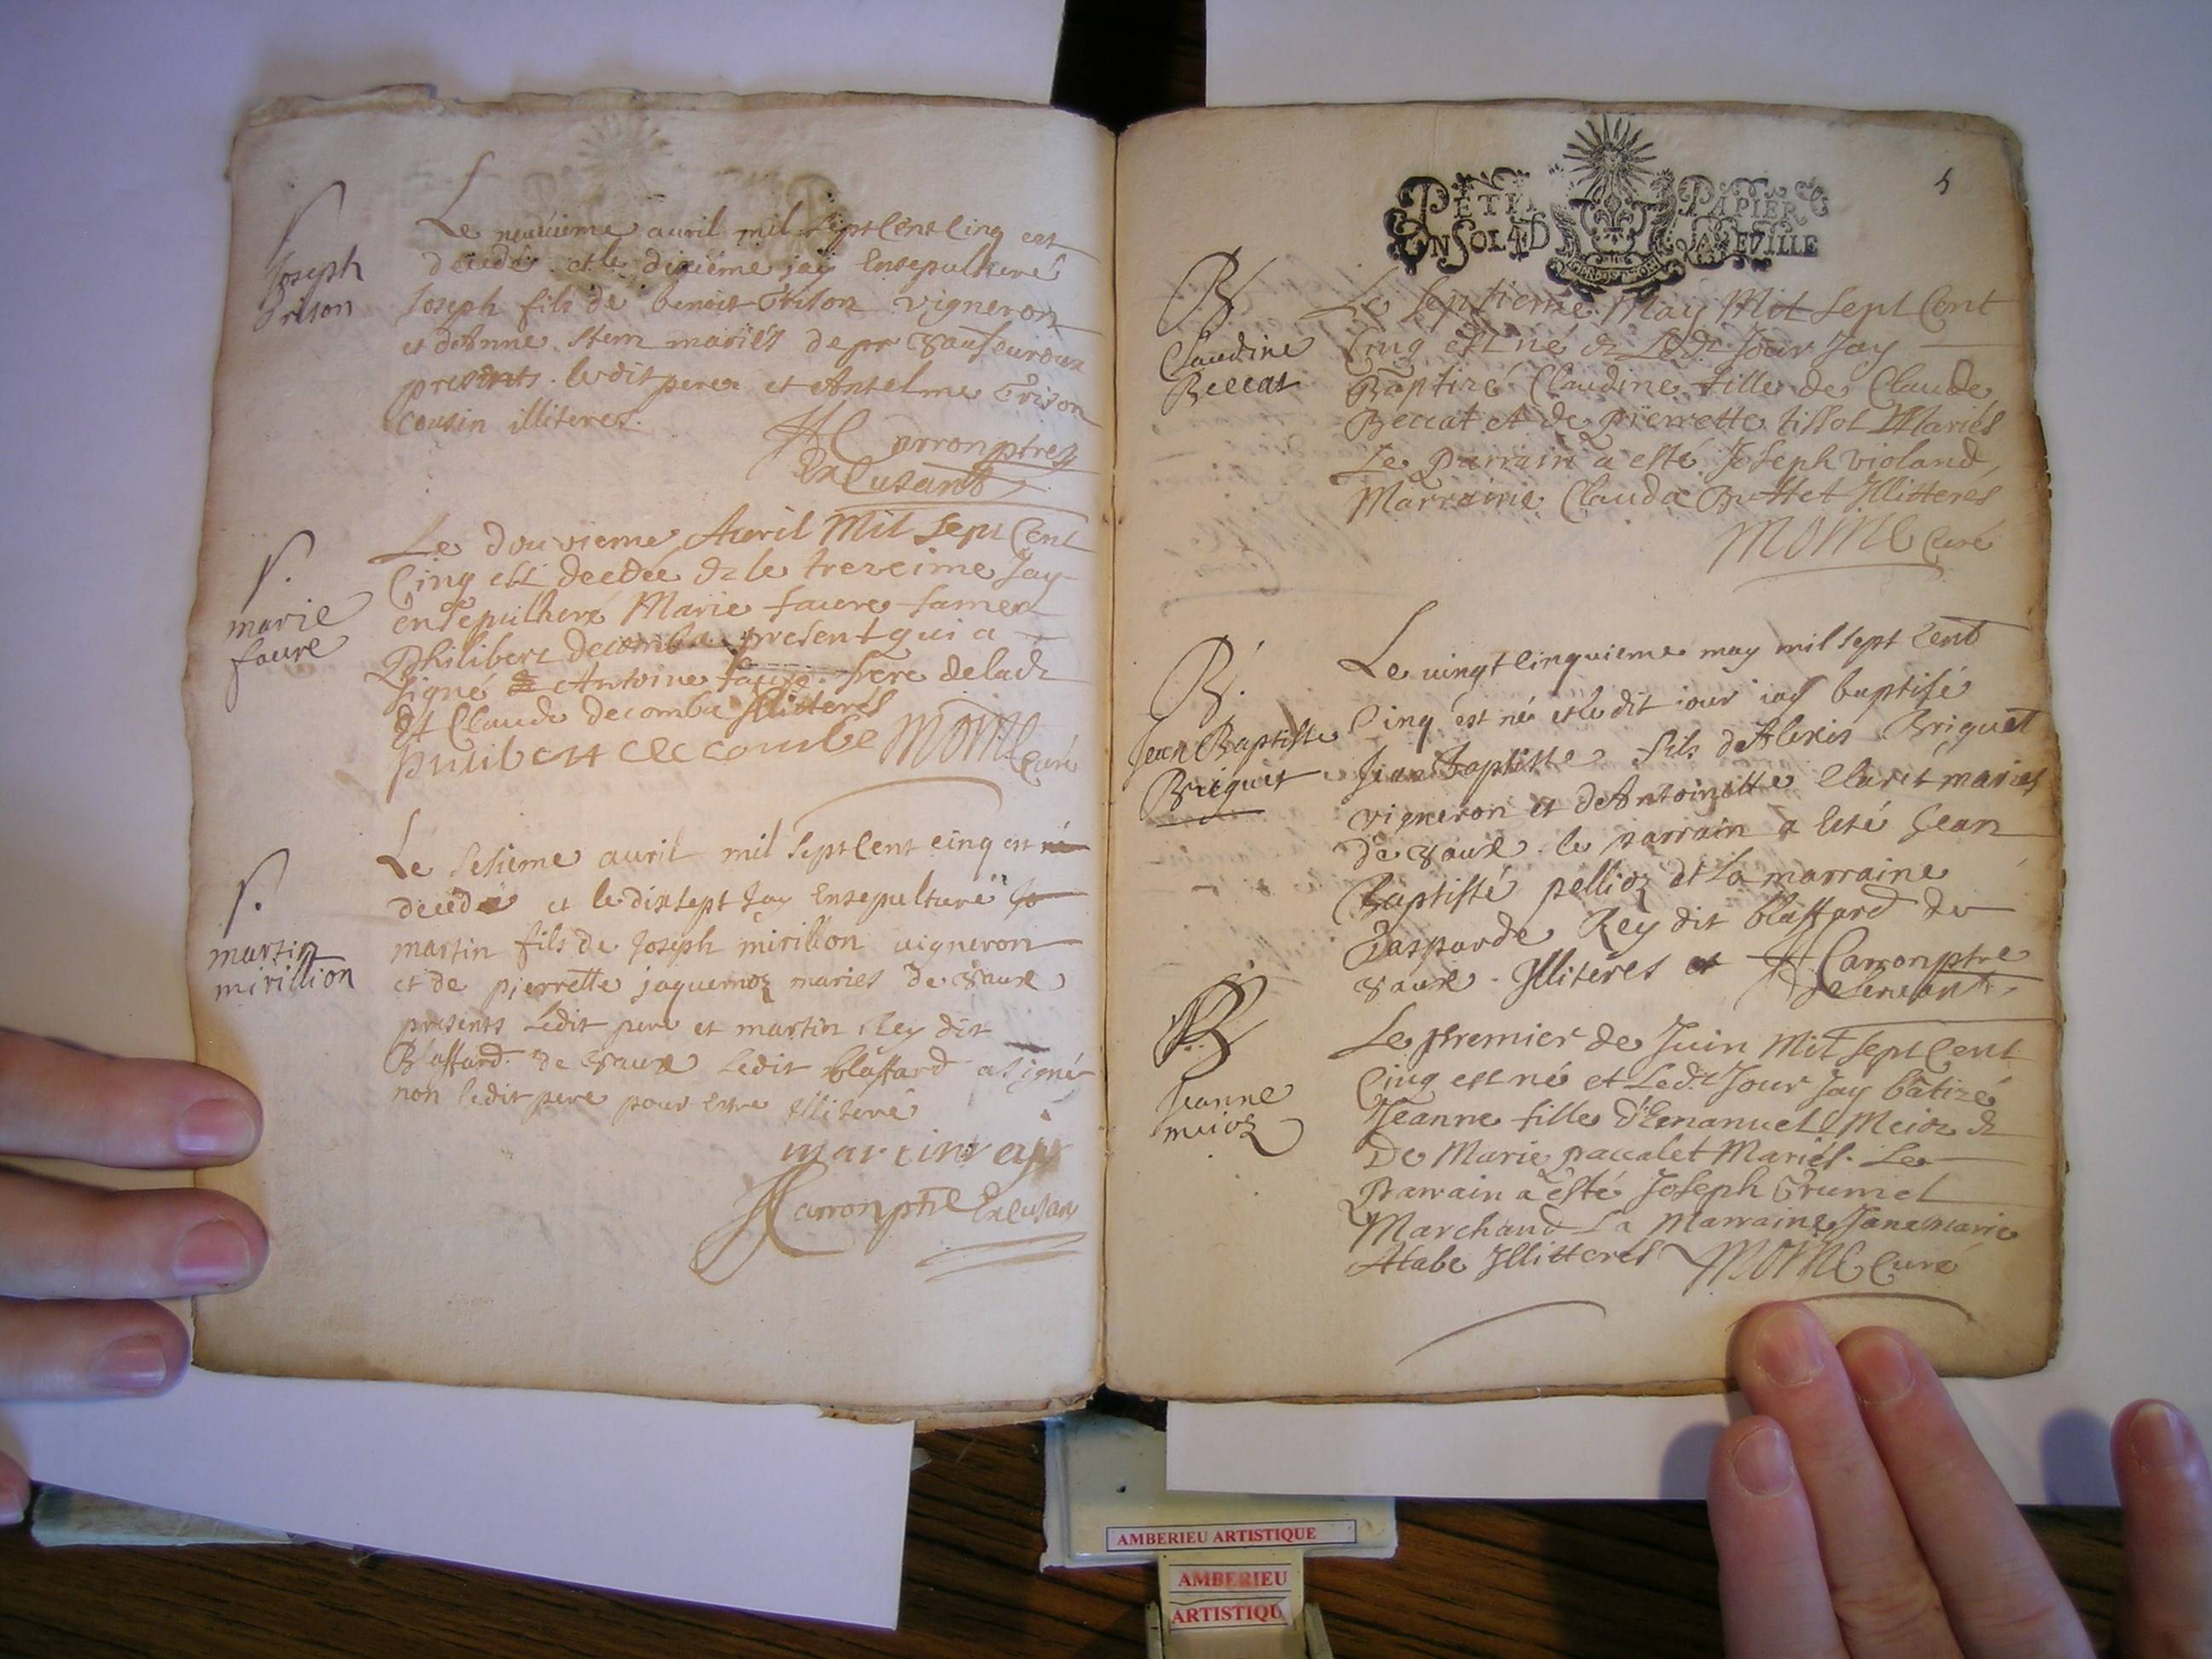 S
Joseph
Trison
Le neuuieme auril mil sept Cent Cinq est
decedé et le dixiéme jay Ensepulturé
Joseph fils de benoit Trison vigneron
et deAnne mariés de
presents ledit pere et Antelme Trison
Cousin illiteres.
Carronptre
S.
marie
faure
Le douzieme Avril Mil Sept Cent
Cinq est decedée & le trezeime Jay
ensepulheré Marie faure famea
Philibert decomba present qui a
signé Antoine faure frere deladt
Et Claude decomba Illiterés
philibert decombe MOINE Curé
S.
martin
mirillion
Le sesieme auril mil Sept Cent cinq est né
decedé et le dixsept Jay Ensepulturé Jo
martin fils de Joseph mirilion uigneron
et de pierrette jaquemoz maries de Vaux
presents Ledit pere et martin Rey dit
Blaffard de Vaux Ledit blaffard a signé
non ledit pere pour Estre Illiteré
martin rey
Carronptre
PETIT PAPIER
UN SOL 4 D LA FEUILLE
5
B
Claudine
Beccat
Le Septieme May Mil Sept Cent
Cinq est né & Ledt Jour Jay
Baptizé Claudine fille de Claude
Beccat et de pierrette tissot Mariés
Le parrain a esté Joseph violand
Marraine Clauda Buttet Illitterés
MOINE Curé
B.
Jean Baptiste
Briquet
Le uingt Cinquieme may mil sept Cent
Cinq est né et ledit iour iay baptisé
Jean Baptiste fils deAlexis Briquet
vigneron et deAntoinette Claret mariés
de Vaux le parrain a Esté Jean
Baptiste pellioz et La marraine
Gasparde Rey dit blaffard de
Vaux. Illiteres et Carronptre
B
Jeanne
meioz
Le premier de Juin Mil sept Cent
Cinq est né et Ledt Jour Jay bâtizé
Jeanne fille d'Emanuel Meioz &
De Marie paccalet Mariés. Le
Parrain a Esté Joseph Grumel
Marchand La Marraine Jane marie
Atabe Illitterés MOINE Curé
AMBERIEU ARTISTIQUE
AMBERIEU
ARTISTIQU